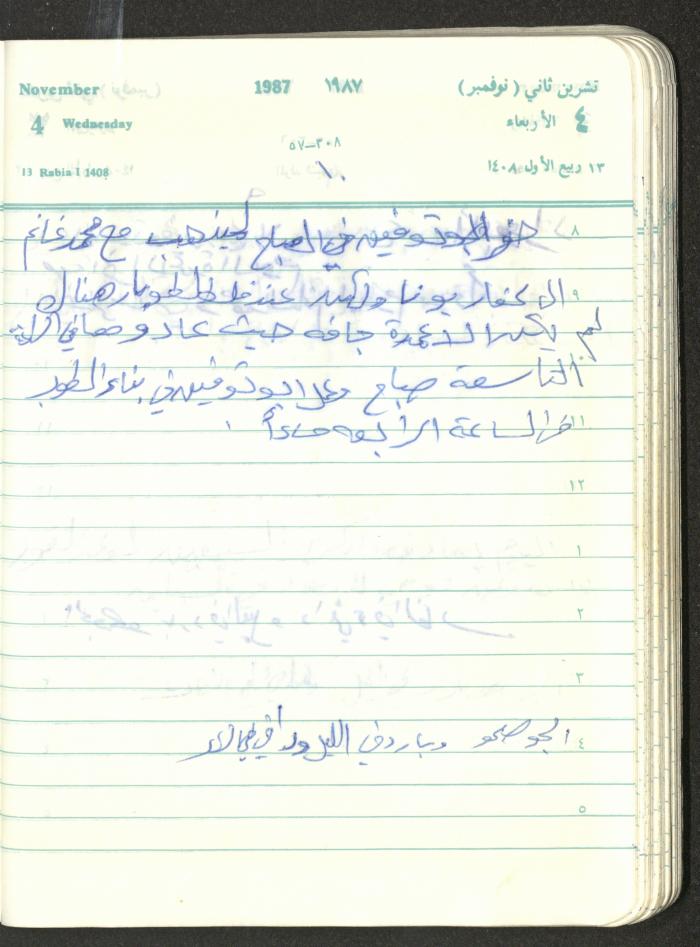 November 1987 ١٩٨٧ تشرين ثاني ( نوفمبر )
4 Wednesday ٤ الأربعاء
٣٠٨–٥٧
13 Rabia I 1408 ١٣ ربيع الأول ١٤٠٨
١٠
٨ حضر ابو توفيق في الصباح ليذهب مع محمد غانم
٩ الى كفار يونا ولكن عندما هناك
لم تكن الاعمدة جافه حيث عادو معا في الساعة
التاسعة صباح وعمل ابو توفيق في بناء الطوب
١١ الساعة الرابعه مساءاً
١٢
١
٢
٣
٤ الجو صحو وبارد في الليل ودافي في
٥